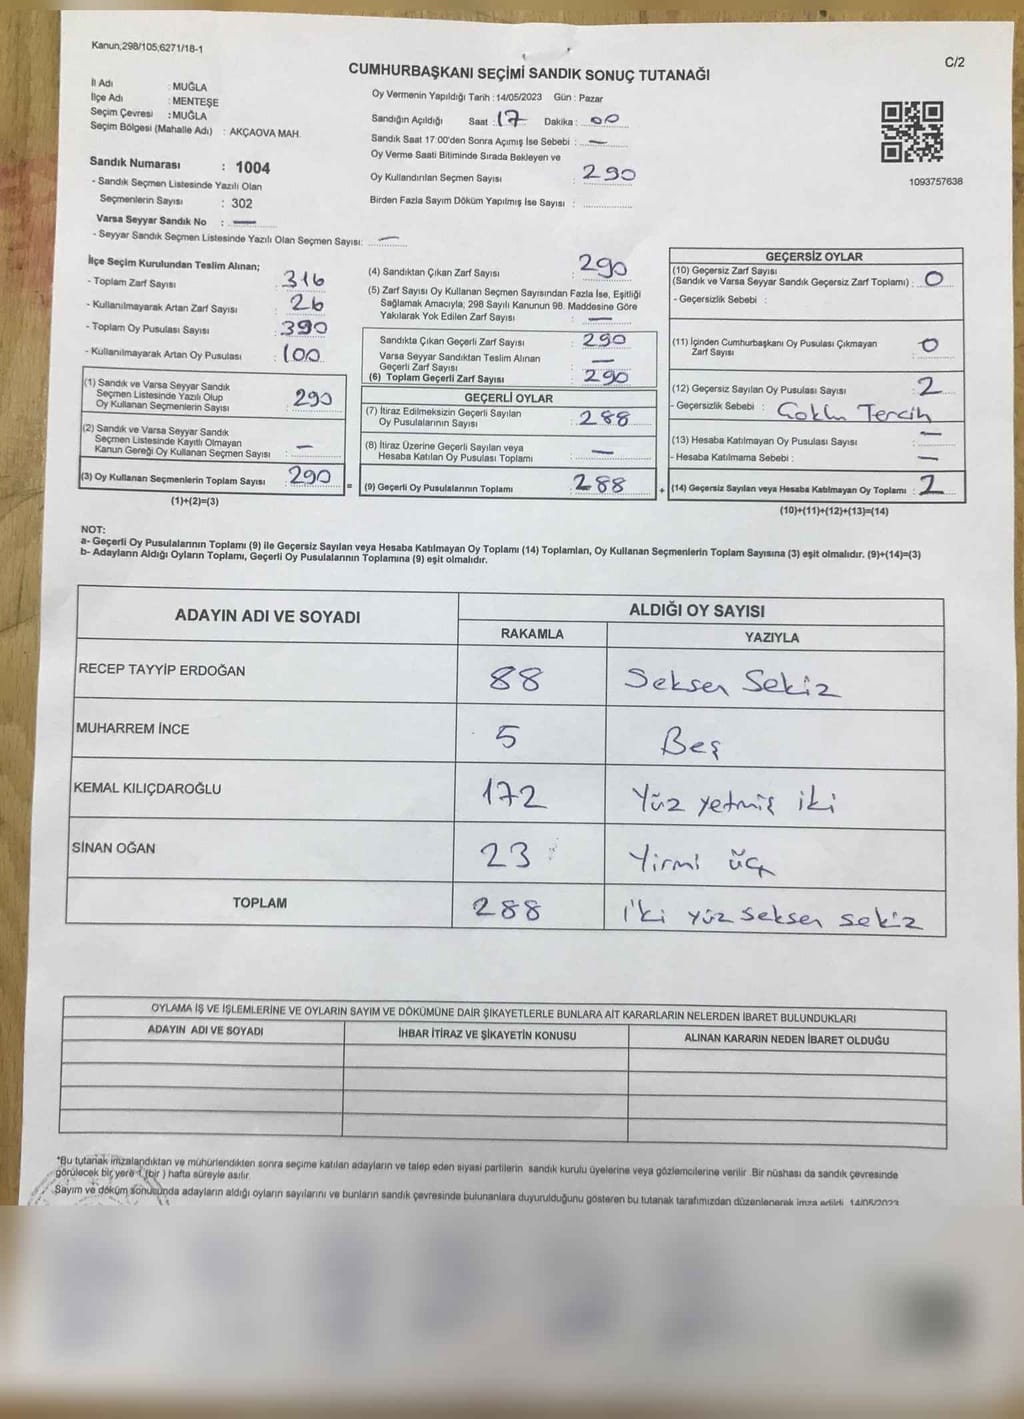 Kanun;298/105;6271/18-1
C/2
CUMHURBAŞKANI SEÇİMİ SANDIK SONUÇ TUTANAĞI
İl Adı : MUĞLA
İlçe Adı : MENTEŞE
Seçim Çevresi : MUĞLA
Seçim Bölgesi (Mahalle Adı) : AKÇAOVA MAH.
Oy Vermenin Yapıldığı Tarih : 14/05/2023 Gün : Pazar
Sandığın Açıldığı Saat : 17 Dakika : 00
Sandık Saat 17:00'den Sonra Açımış İse Sebebi : —
Oy Verme Saati Bitiminde Sırada Bekleyen ve
Oy Kullandırılan Seçmen Sayısı : 290
Birden Fazla Sayım Döküm Yapılmış İse Sayısı :
1093757638
Sandık Numarası : 1004
- Sandık Seçmen Listesinde Yazılı Olan
Seçmenlerin Sayısı : 302
Varsa Seyyar Sandık No : —
- Seyyar Sandık Seçmen Listesinde Yazılı Olan Seçmen Sayısı: —
İlçe Seçim Kurulundan Teslim Alınan;
- Toplam Zarf Sayısı : 316
- Kullanılmayarak Artan Zarf Sayısı : 26
- Toplam Oy Pusulası Sayısı : 390
- Kullanılmayarak Artan Oy Pusulası : 100
(1) Sandık ve Varsa Seyyar Sandık
Seçmen Listesinde Yazılı Olup
Oy Kullanan Seçmenlerin Sayısı : 290
(2) Sandık ve Varsa Seyyar Sandık
Seçmen Listesinde Kayıtlı Olmayan
Kanun Gereği Oy Kullanan Seçmen Sayısı : —
(3) Oy Kullanan Seçmenlerin Toplam Sayısı : 290
(1)+(2)=(3)
(4) Sandıktan Çıkan Zarf Sayısı : 290
(5) Zarf Sayısı Oy Kullanan Seçmen Sayısından Fazla İse, Eşitliği
Sağlamak Amacıyla; 298 Sayılı Kanunun 98. Maddesine Göre
Yakılarak Yok Edilen Zarf Sayısı : —
Sandıkta Çıkan Geçerli Zarf Sayısı : 290
Varsa Seyyar Sandıktan Teslim Alınan
Geçerli Zarf Sayısı : —
(6) Toplam Geçerli Zarf Sayısı : 290
GEÇERLİ OYLAR
(7) İtiraz Edilmeksizin Geçerli Sayılan
Oy Pusulalarının Sayısı : 288
(8) İtiraz Üzerine Geçerli Sayılan veya
Hesaba Katılan Oy Pusulası Toplamı : —
= (9) Geçerli Oy Pusulalarının Toplamı : 288
GEÇERSİZ OYLAR
(10) Geçersiz Zarf Sayısı
(Sandık ve Varsa Seyyar Sandık Geçersiz Zarf Toplamı) : 0
- Geçersizlik Sebebi :
(11) İçinden Cumhurbaşkanı Oy Pusulası Çıkmayan
Zarf Sayısı : 0
(12) Geçersiz Sayılan Oy Pusulası Sayısı : 2
- Geçersizlik Sebebi : Çoklu Tercih
(13) Hesaba Katılmayan Oy Pusulası Sayısı : —
- Hesaba Katılmama Sebebi : —
+ (14) Geçersiz Sayılan veya Hesaba Katılmayan Oy Toplamı : 2
(10)+(11)+(12)+(13)=(14)
NOT:
a- Geçerli Oy Pusulalarının Toplamı (9) ile Geçersiz Sayılan veya Hesaba Katılmayan Oy Toplamı (14) Toplamları, Oy Kullanan Seçmenlerin Toplam Sayısına (3) eşit olmalıdır. (9)+(14)=(3)
b- Adayların Aldığı Oyların Toplamı, Geçerli Oy Pusulalarının Toplamına (9) eşit olmalıdır.
ADAYIN ADI VE SOYADI
ALDIĞI OY SAYISI
RAKAMLA YAZIYLA
RECEP TAYYİP ERDOĞAN 88 Seksen Sekiz
MUHARREM İNCE 5 Beş
KEMAL KILIÇDAROĞLU 172 Yüz yetmiş iki
SİNAN OĞAN 23 Yirmi üç
TOPLAM 288 iki yüz seksen sekiz
OYLAMA İŞ VE İŞLEMLERİNE VE OYLARIN SAYIM VE DÖKÜMÜNE DAİR ŞİKAYETLERLE BUNLARA AİT KARARLARIN NELERDEN İBARET BULUNDUKLARI
ADAYIN ADI VE SOYADI İHBAR İTİRAZ VE ŞİKAYETİN KONUSU ALINAN KARARIN NEDEN İBARET OLDUĞU
*Bu tutanak imzalandıktan ve mühürlendikten sonra seçime katılan adayların ve talep eden siyasi partilerin sandık kurulu üyelerine veya gözlemcilerine verilir. Bir nüshası da sandık çevresinde
görülecek bir yere 1 (bir ) hafta süreyle asılır.
Sayım ve döküm sonucunda adayların aldığı oyların sayılarını ve bunların sandık çevresinde bulunanlara duyurulduğunu gösteren bu tutanak tarafımızdan düzenlenerek imza edildi. 14/05/2023